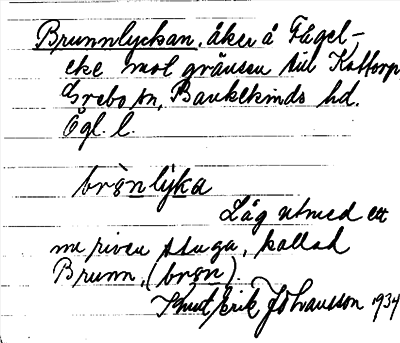 Brunnlyckan, åker å Fågel-
eke mot gränsen till Kattorp,
Grebo sn, Bankekinds hd.
Ögl. l.
brȯnlyka
Låg utmed ett
nu riven stuga, kallad
Brunn, (brȯn).
Knut Erik Johansson 1934